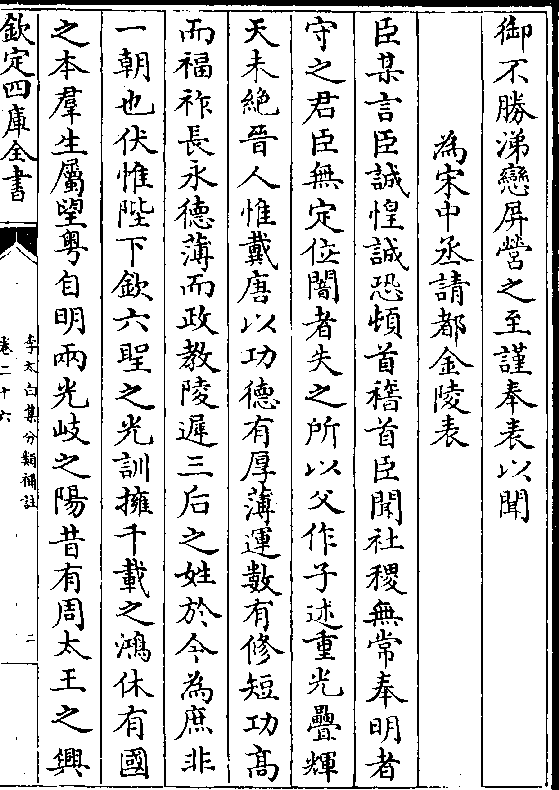 御不勝涕戀屏營之至謹奉表以聞
為宋中丞請都金陵表
臣某言臣誠惶誠恐頓首稽首臣聞社稷無常奉明者
守之君臣無定位闇者失之所以父作子述重光疊輝
天未絶晉人惟戴唐以功德有厚薄運數有修短功髙
而福祚長永德薄而政教陵遲三后之姓於今為庶非
一朝也伏惟陛下欽六聖之光訓擁千載之鴻休有國
之本羣生屬望粤自明兩光岐之陽昔有周太王之興
欽定四庫全書
李太白集分類補註
卷二十六
二